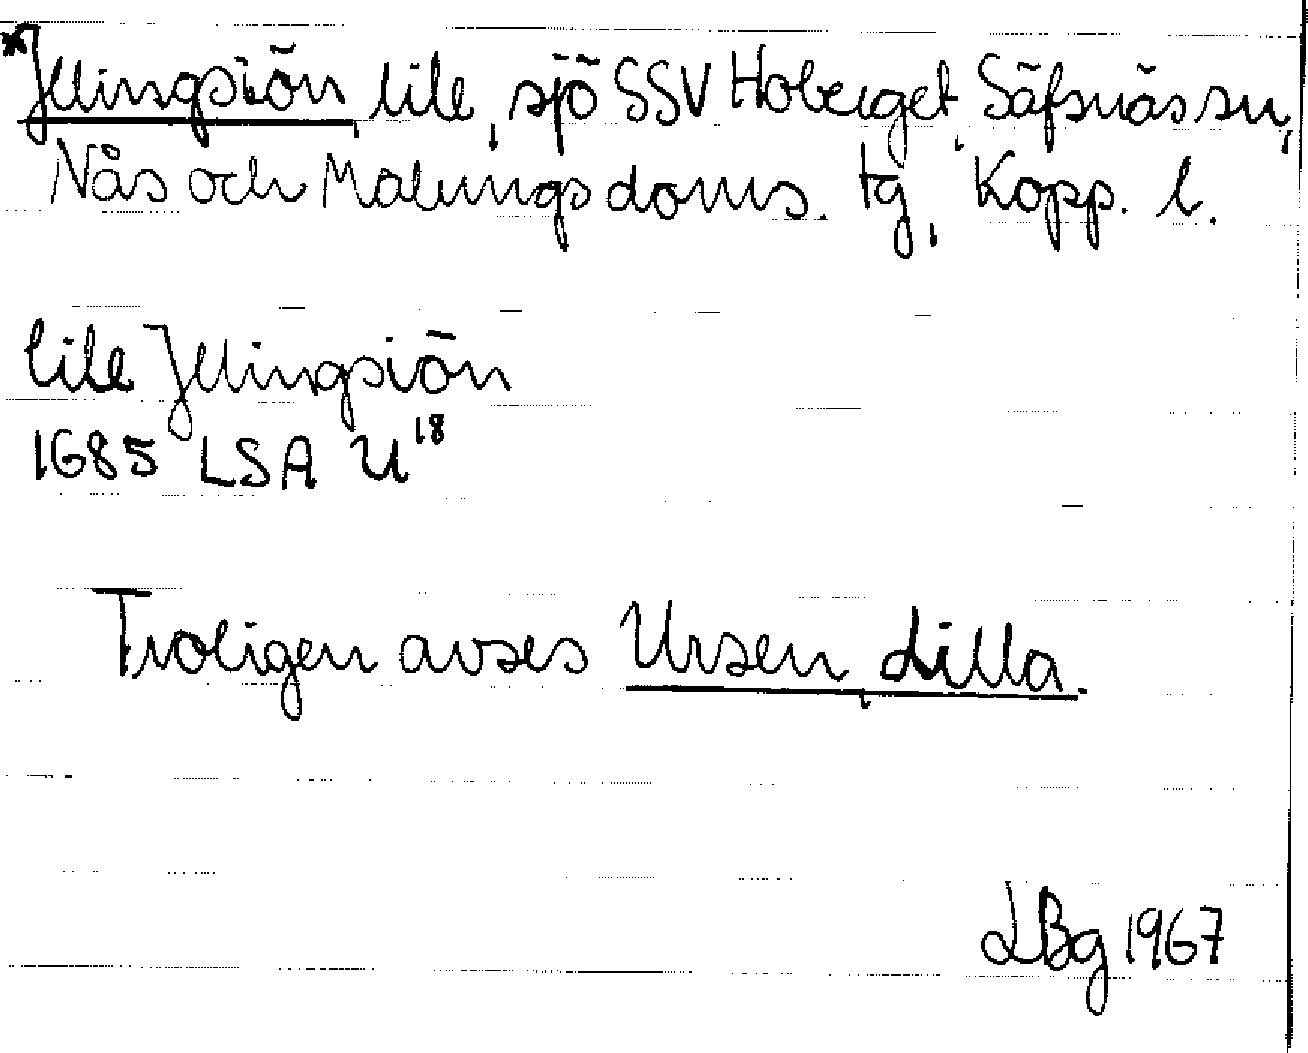 *Jllingsiön, lile, sjö SSV Hoberget, Säfsnäs sn,
Nås och Malungs doms. tg, Kopp. l.
lile Jllingsiön
1685 LSA U18
Troligen avses Ursen, Lilla.
LBg 1967